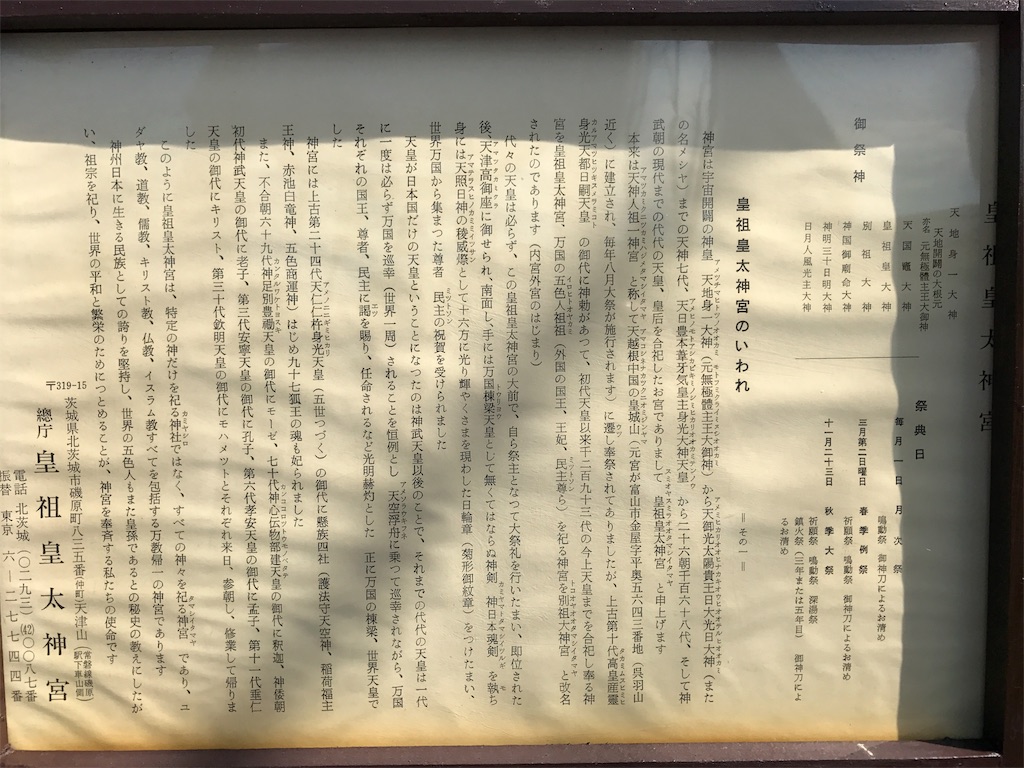 皇祖皇太神宮
御祭神
天地身一大神
天地開闢の大根元
亦名 元無極體主王大御神
天国竈大神
皇祖皇大神
別祖大神
神国御廟命大神
神明三十日明大神
日月人風光主大神
祭典日
毎月一日 月次祭
鳴動祭 御神刀によるお清め
三月第二日曜日 春季例祭
祈願祭 鳴動祭 御神刀によるお清め
十一月二十三日 秋季大祭
祈願祭 鳴動祭 深湯祭
鎮火祭(三年または五年目) 御神刀によ
るお清め
皇祖皇太神宮のいわれ
=その一=
神宮は宇宙開闢の神皇 天地身一大神(元無極體主王大御神)から天御光太陽貴王日大光日大神(また
の名メシヤ)までの天神七代、天日豊本葦牙気皇主身光大神天皇 から二十六朝千百六十八代、そして神
武朝の現代までの代代の天皇、皇后を合祀したお宮でありまして 皇祖皇太神宮 と申上げます
本来は天神人祖一神宮 と称して天越根中国の皇城山(元宮が富山市金屋字平奥五六四三番地(呉羽山
近く)に建立され、毎年八月大祭が施行されます)に遷し奉祭されてありましたが、上古第十代高皇産霊
身光天都日嗣天皇 の御代に神勅があって、初代天皇以来千二百九十三代の今上天皇までを合祀し奉る神
宮を皇祖皇太神宮、万国の五色人祖祖(外国の国王、王妃、民主尊ら)を祀る神宮を別祖大神宮 と改名
されたのであります(内宮外宮のはじまり)
代々の天皇は必らず、この皇祖皇太神宮の大前で、自ら祭主となつて大祭礼を行いたまい、即位された
後、天津高御座に御せられ、南面し、手には万国棟梁天皇として無くてはならぬ神剣、神日本魂剣 を執ち
身には天照日神の稜威燦として十六方に光り輝やくさまを現わした日輪章(菊形御紋章)をつけたまい、
世界万国から集まつた尊者 民主の祝賀を受けられました
天皇が日本国だけの天皇ということになつたのは神武天皇以後のことで、それまでの代代の天皇は一代
に一度は必らず万国を巡幸(世界一周)されることを恒例とし 天空浮舟に乗って巡幸されながら、万国
それぞれの国王、尊者、民主に謁を賜り、任命されるなど光明赫灼とした 正に万国の棟梁、世界天皇で
した
神宮には上古第二十四代天仁仁杵身光天皇(五世つづく)の御代に懸族四社(護法守天空神、稲荷福主
王神、赤池白竜神、五色商運神)はじめ九十七狐王の魂も妃られました
また、不合朝六十九代神足別豊鋤天皇の御代にモーゼ、七十代神心伝物部建天皇の御代に釈迦、神倭朝
初代神武天皇の御代に老子、第三代安寧天皇の御代に孔子、第六代孝安天皇の御代に孟子、第十一代垂仁
天皇の御代にキリスト、第三十代欽明天皇の御代にモハメツトとそれぞれ来日、参朝し、修業して帰りま
した
このように皇祖皇太神宮は、特定の神だけを祀る神社ではなく、すべての神々を祀る神宮 であり、ユ
ダヤ教、道教、儒教、キリスト教、仏教、イスラム教すべてを包括する万教帰一の神宮であります
神州日本に生きる民族としての誇りを堅持し、世界の五色人もまた皇孫であるとの秘史の教えにしたが
い、祖宗を祀り、世界の平和と繁栄のためにつとめることが、神宮を奉斎する私たちの使命です
〒319-15
茨城県北茨城市磯原町八三五番(仲町)天津山(常磐線磯原駅下車山側)
總庁 皇祖皇太神宮
電話 北茨城(〇二九三)(42)〇〇八七番
振替 東京 六—二七七四四番